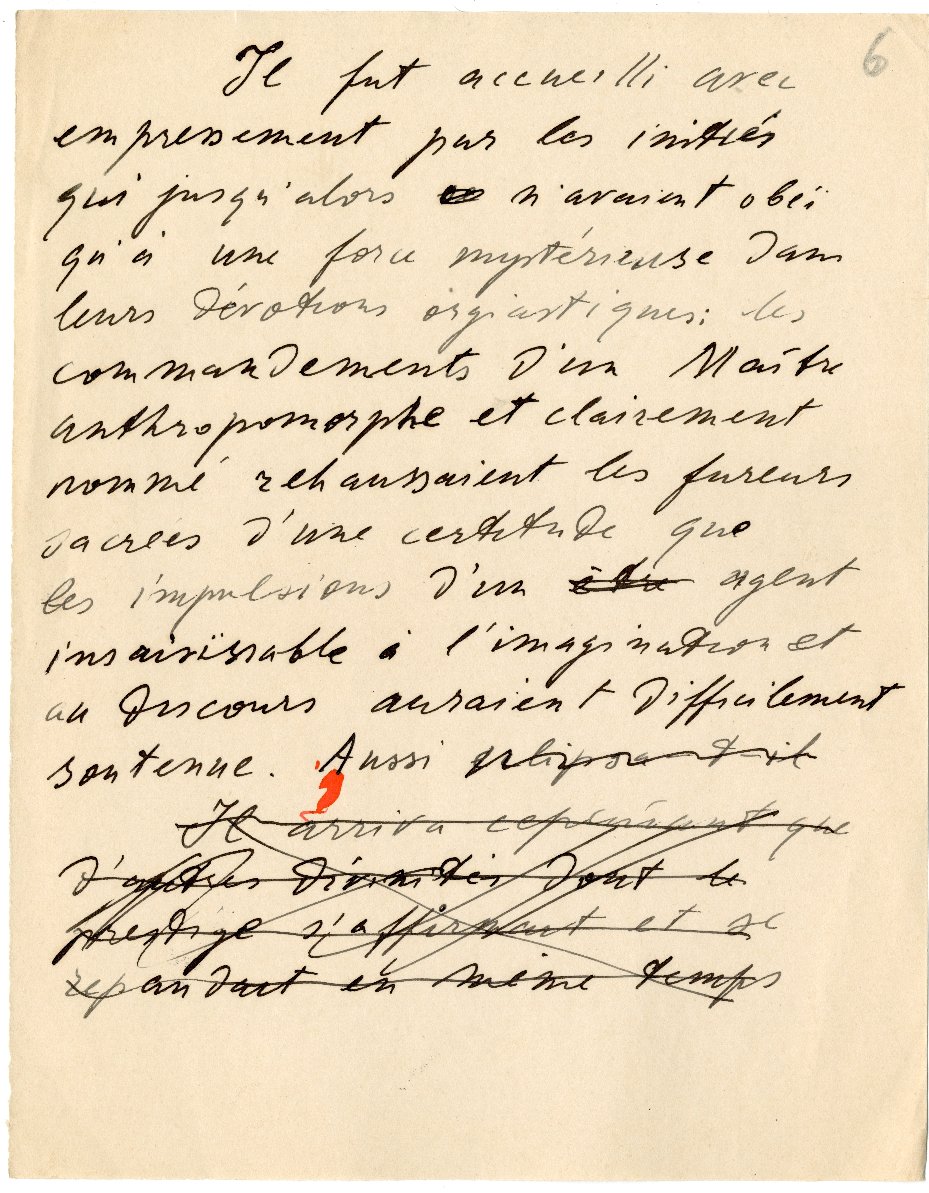 6
Il fut accueilli avec
empressement par les initiés
qui jusqu'alors n'avaient obéi
qu'à une force mystérieuse dans
leurs dévotions orgiastiques: les
commandements d'un Maître
anthropomorphe et clairement
nommé rehaussaient les fureurs
sacrées d'une certitude que
les impulsions d'un être agent
insaisissable à l'imagination et
au discours auraient difficilement
soutenue. Aussi
Il arriva cependant que
d'autres divinités dont le
prestige s'affirmant et se
répandant en même temps